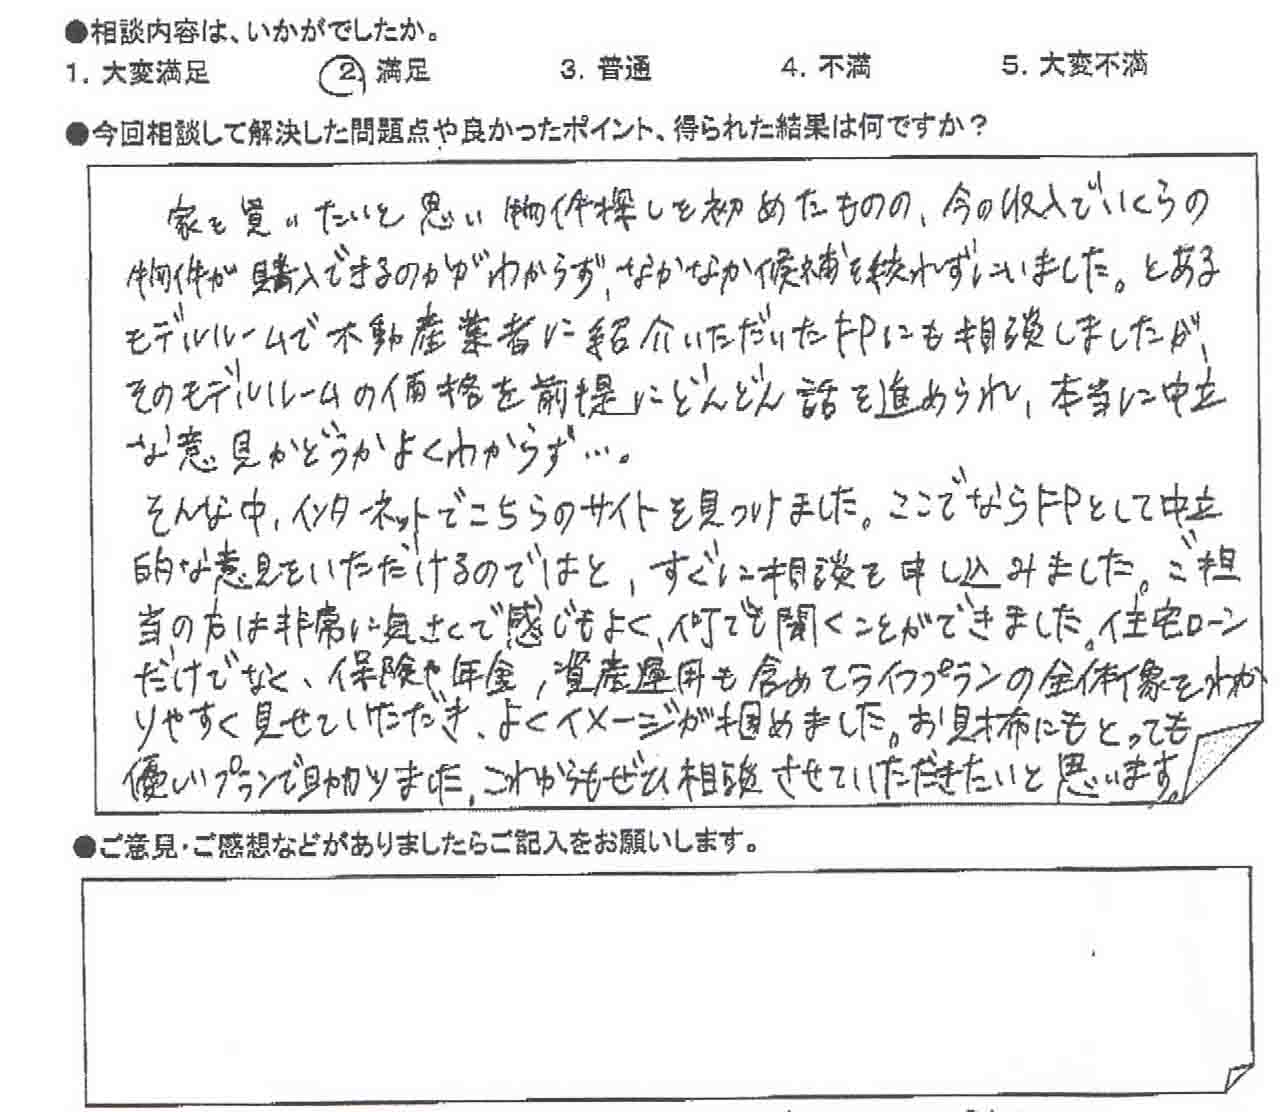 ●相談内容は、いかがでしたか。
1. 大変満足 2. 満足 3. 普通 4. 不満 5. 大変不満
●今回相談して解決した問題点や良かったポイント、得られた結果は何ですか？
家を買いたいと思い物件探しを初めたものの、今の収入でいくらの
物件が購入できるのかがわからず、なかなか候補を絞れずにいました。とある
モデルルームで不動産業者に紹介いただいたFPにも相談しましたが、
そのモデルルームの価格を前提にどんどん話を進められ、本当に中立
な意見かどうかよくわからず…。
そんな中、インターネットでこちらのサイトを見つけました。ここでならFPとして中立
的な意見をいただけるのではと、すぐに相談を申し込みました。ご担
当の方は非常に気さくで感じもよく、何でも聞くことができました。住宅ローン
だけでなく、保険や年金、資産運用も含めてライフプランの全体像をわか
りやすく見せていただき、よくイメージが掴めました。お財布にもとっても
優しいプランで助かりました。これからもぜひ相談させていただきたいと思います。
●ご意見・ご感想などがありましたらご記入をお願いします。